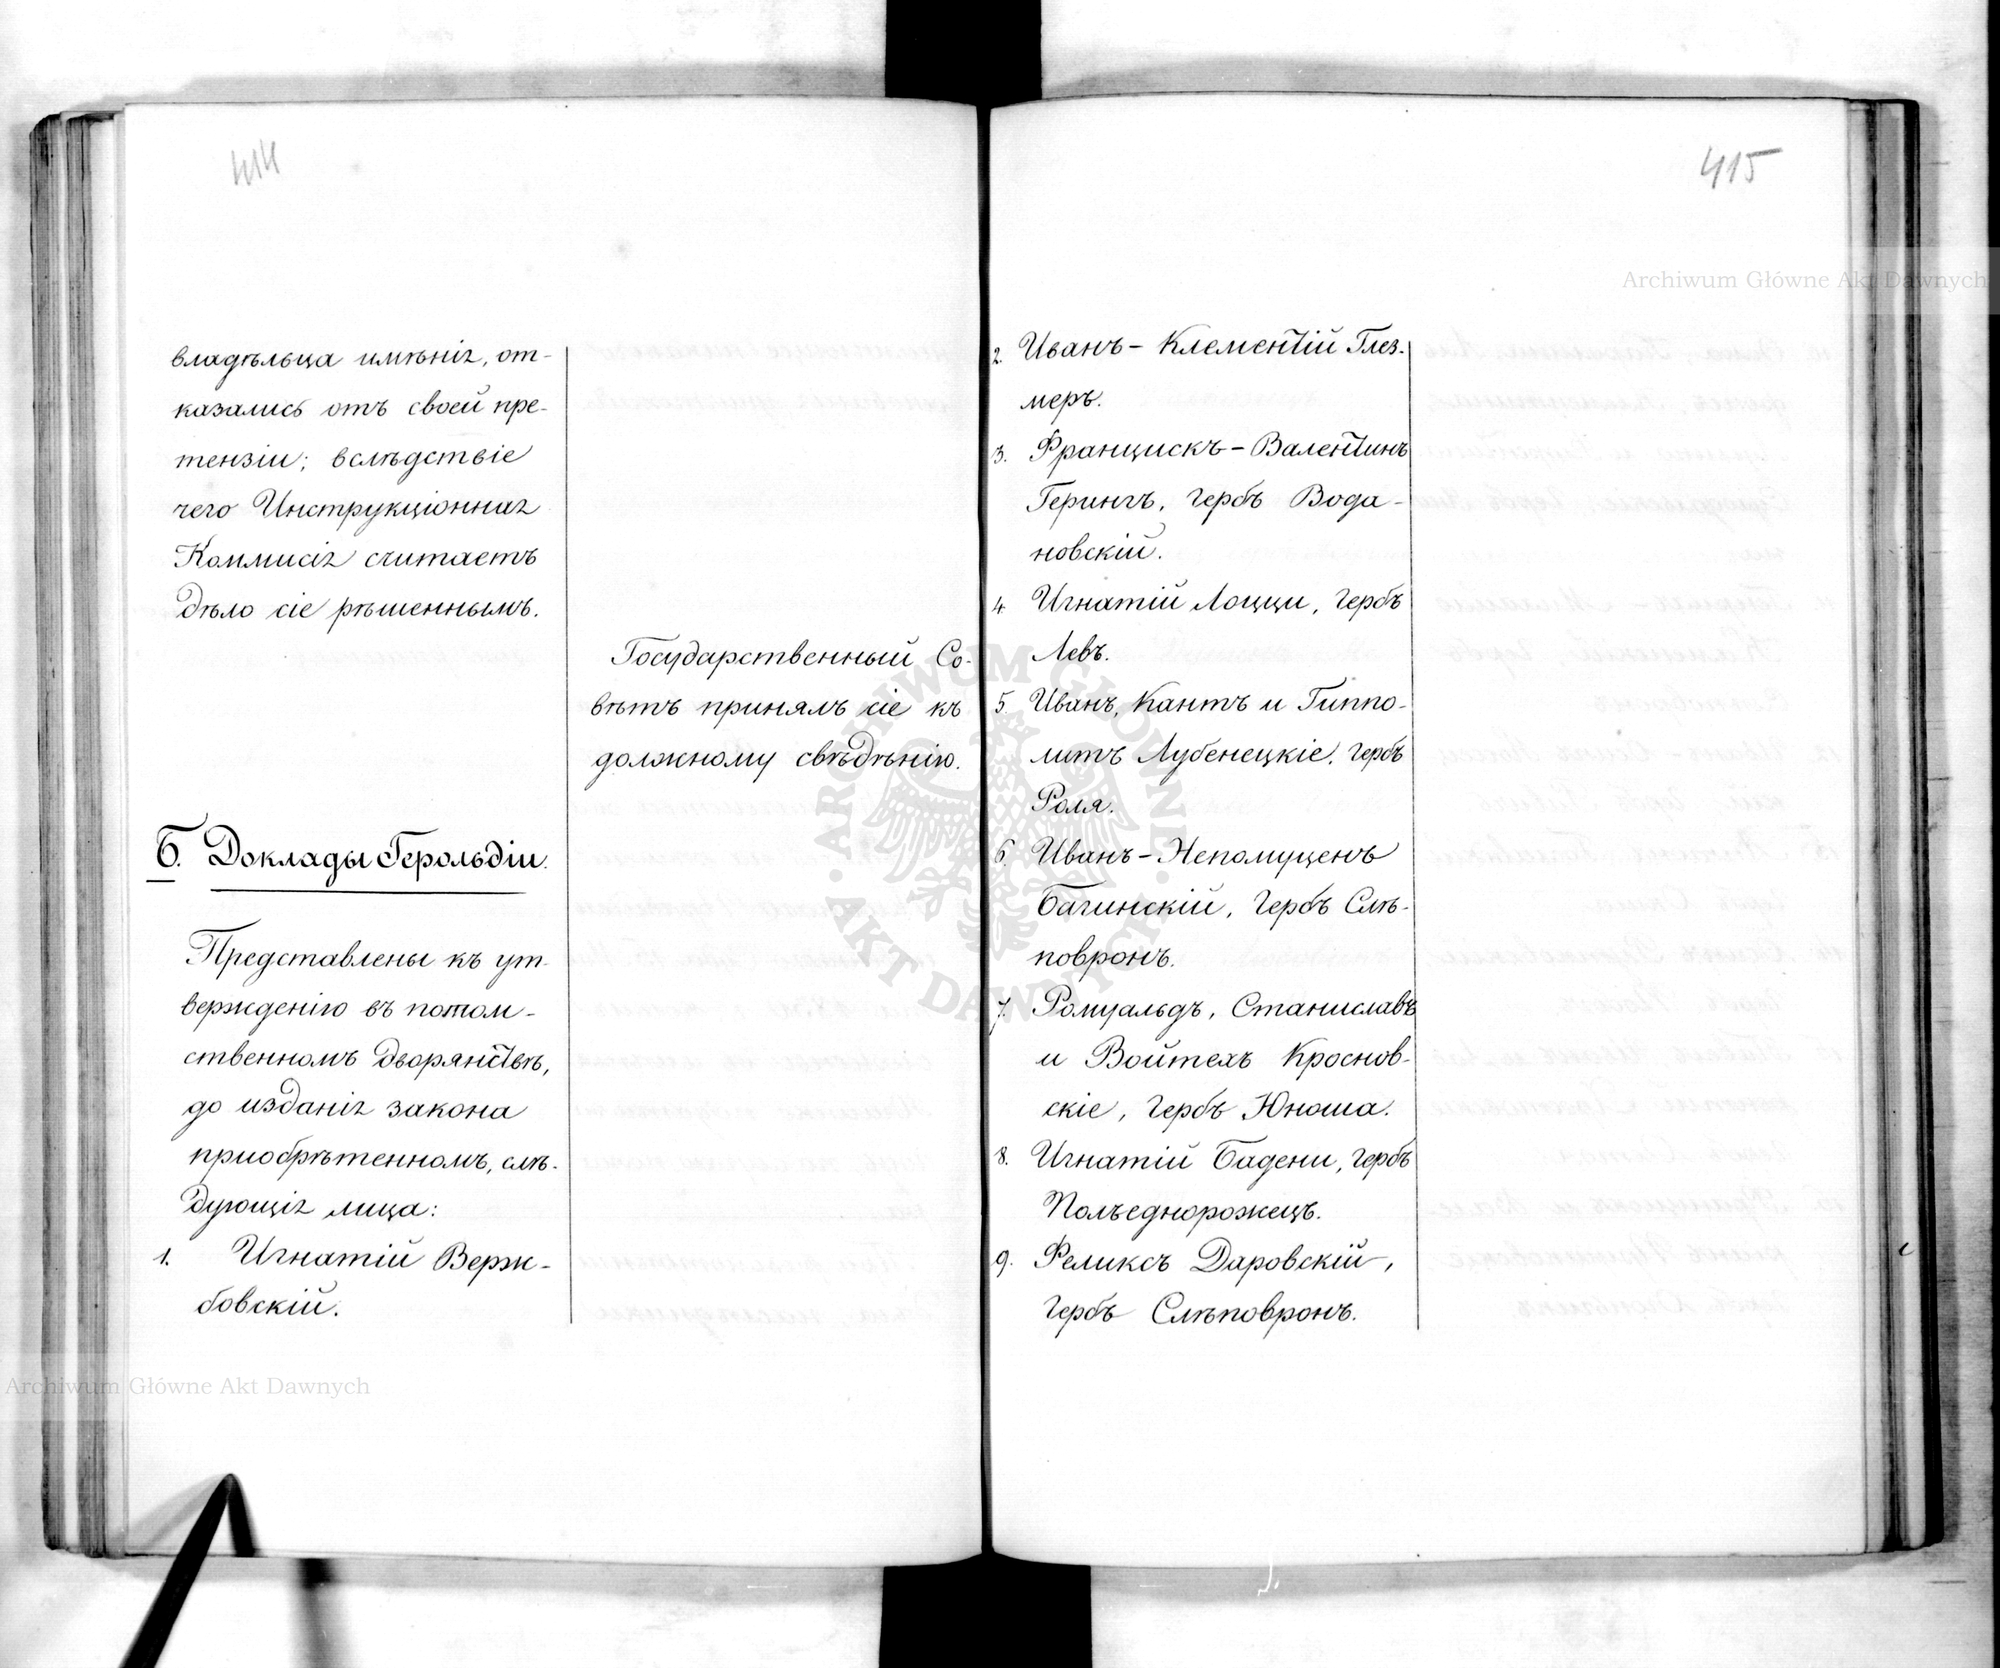 414
владѣльца имѣнія, от-
казались отъ своей пре-
тензіи; вслѣдствіе
чего Инструкціонная
Коммисія считаетъ
дѣло сіе рѣшеннымъ.
Государственный Со-
вѣтъ принялъ сіе къ
должному свѣдѣнію.
Б. Доклады Герольдіи.
Представлены къ ут-
вержденію въ потом-
ственномъ дворянствѣ,
до изданія закона
пріобрѣтенномъ, слѣ-
дующія лица:
1. Игнатій Верж-
бовскій.
415
2. Иванъ-Клементій Глез-
меръ.
3. Францискъ-Валентинъ
Герингъ, гербъ Вода-
новскій.
4 Игнатій Лоцци, гербъ
Левъ.
5. Иванъ, Кантъ и Гиппо-
литъ Лубенецкіе, гербъ
Роля.
6. Иванъ-Непомуценъ
Багинскій, гербъ Слѣ-
повронъ.
7. Ромуальдъ, Станиславъ
и Войтехъ Кроснов-
скіе, гербъ Юноша.
8. Игнатій Бадени, гербъ
Полъеднорожецъ.
9. Феликсъ Даровскій,
гербъ Слѣповронъ.
Archiwum Główne Akt Dawnych
Archiwum Główne Akt Dawnych
ARCHIWUM GŁÓWNE
AKT DAWNYCH